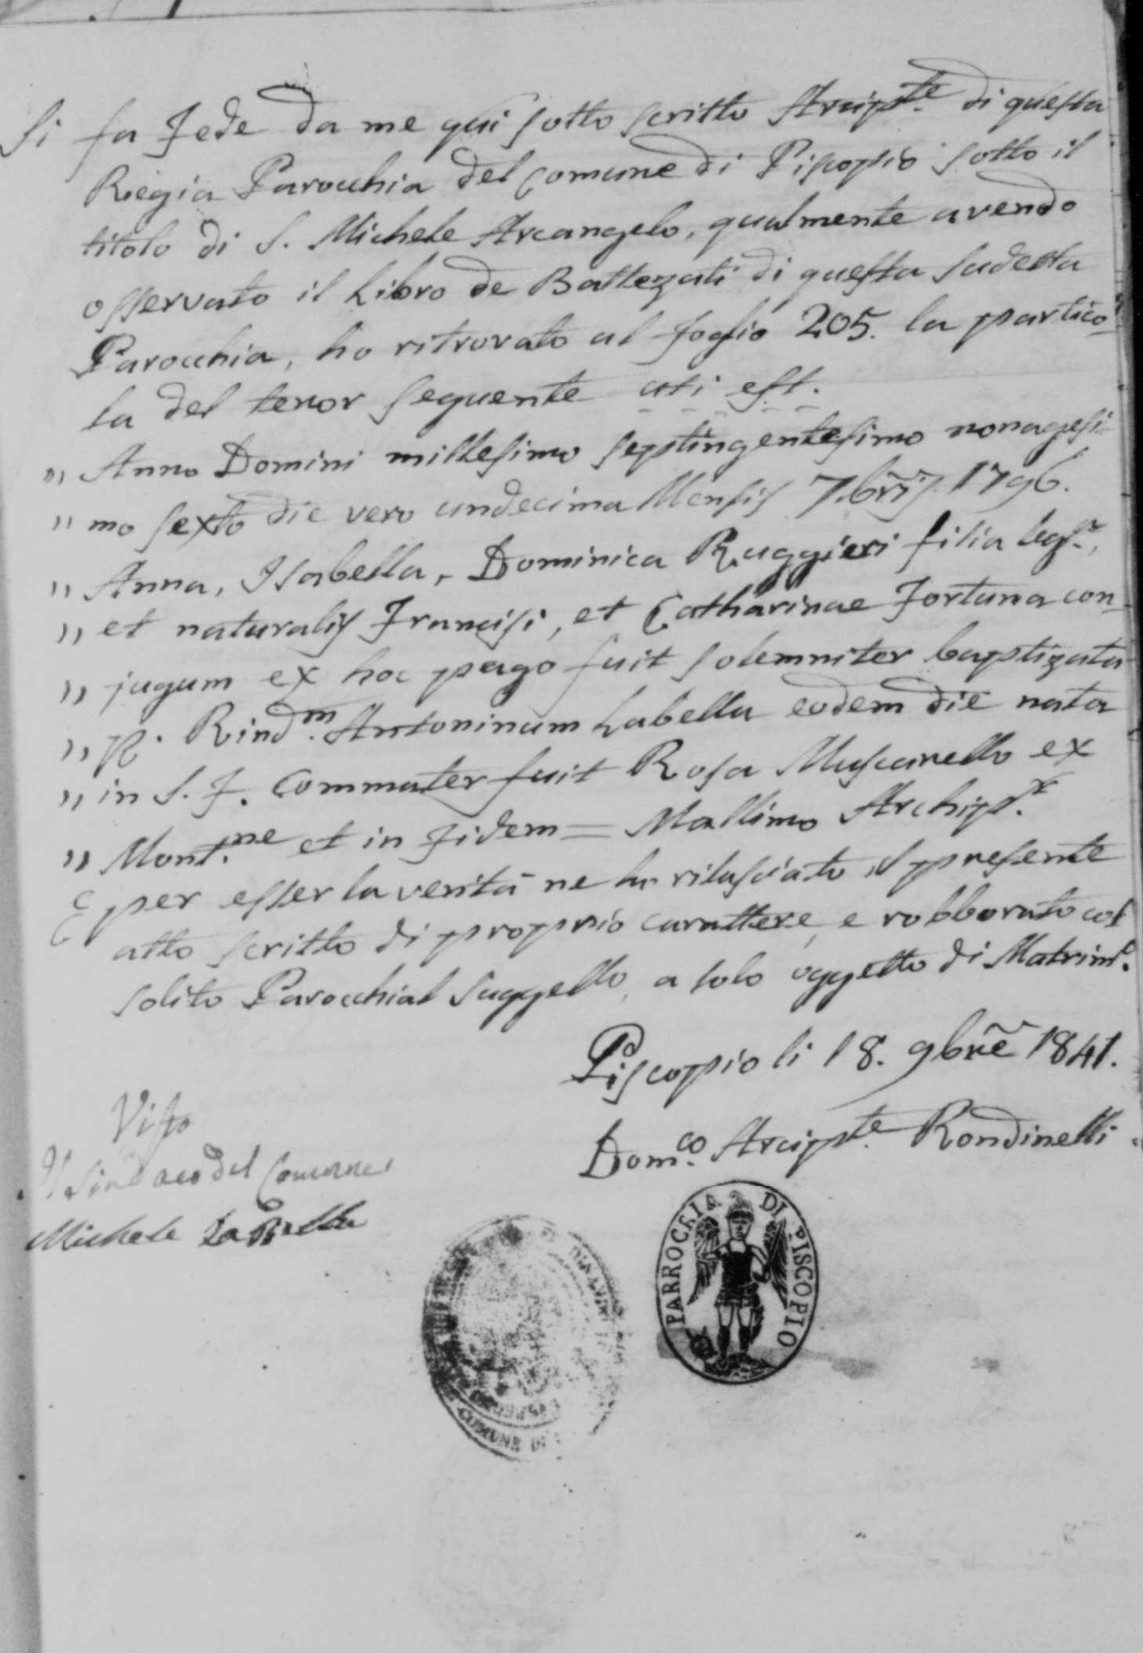 Si fa Fede da me qui sotto scritto Arcip.te di questa
Regia Parocchia del Comune di Piscopio sotto il
titolo di S. Michele Arcangelo, qualmente avendo
osservato il Libro de Battezzati di questa sudetta
Parocchia, ho ritrovato al foglio 205. la partico-
la del tenor seguente uti est.
" Anno Domini millesimo septingentesimo nonagesi-
" mo sexto die vero undecima Mensis 7.bris 1796.
" Anna, Isabella, Dominica Ruggieri filia leg.a,
" et naturalis Francisi, et Catharinae Fortuna con-
" jugum ex hoc pago fuit solemniter baptizata
" p. Rind.m Antoninum Labella eodem die nata
" in S. F. Commater fuit Rosa Muscarello ex
" Mont.ne et in fidem = Massimo Archip.r
E per esser la verità ne ho rilasciato il presente
atto scritto di proprio carattere, e robborato col
solito Parocchial Suggello, a solo oggetto di Matrim.o
Piscopio li 18. 9bre 1841.
Dom.co Arcip.te Rondinelli
Visto
Il Sindaco del Comune
Michele La Bella
PARROCHIA DI PISCOPIO
COMUNE DI